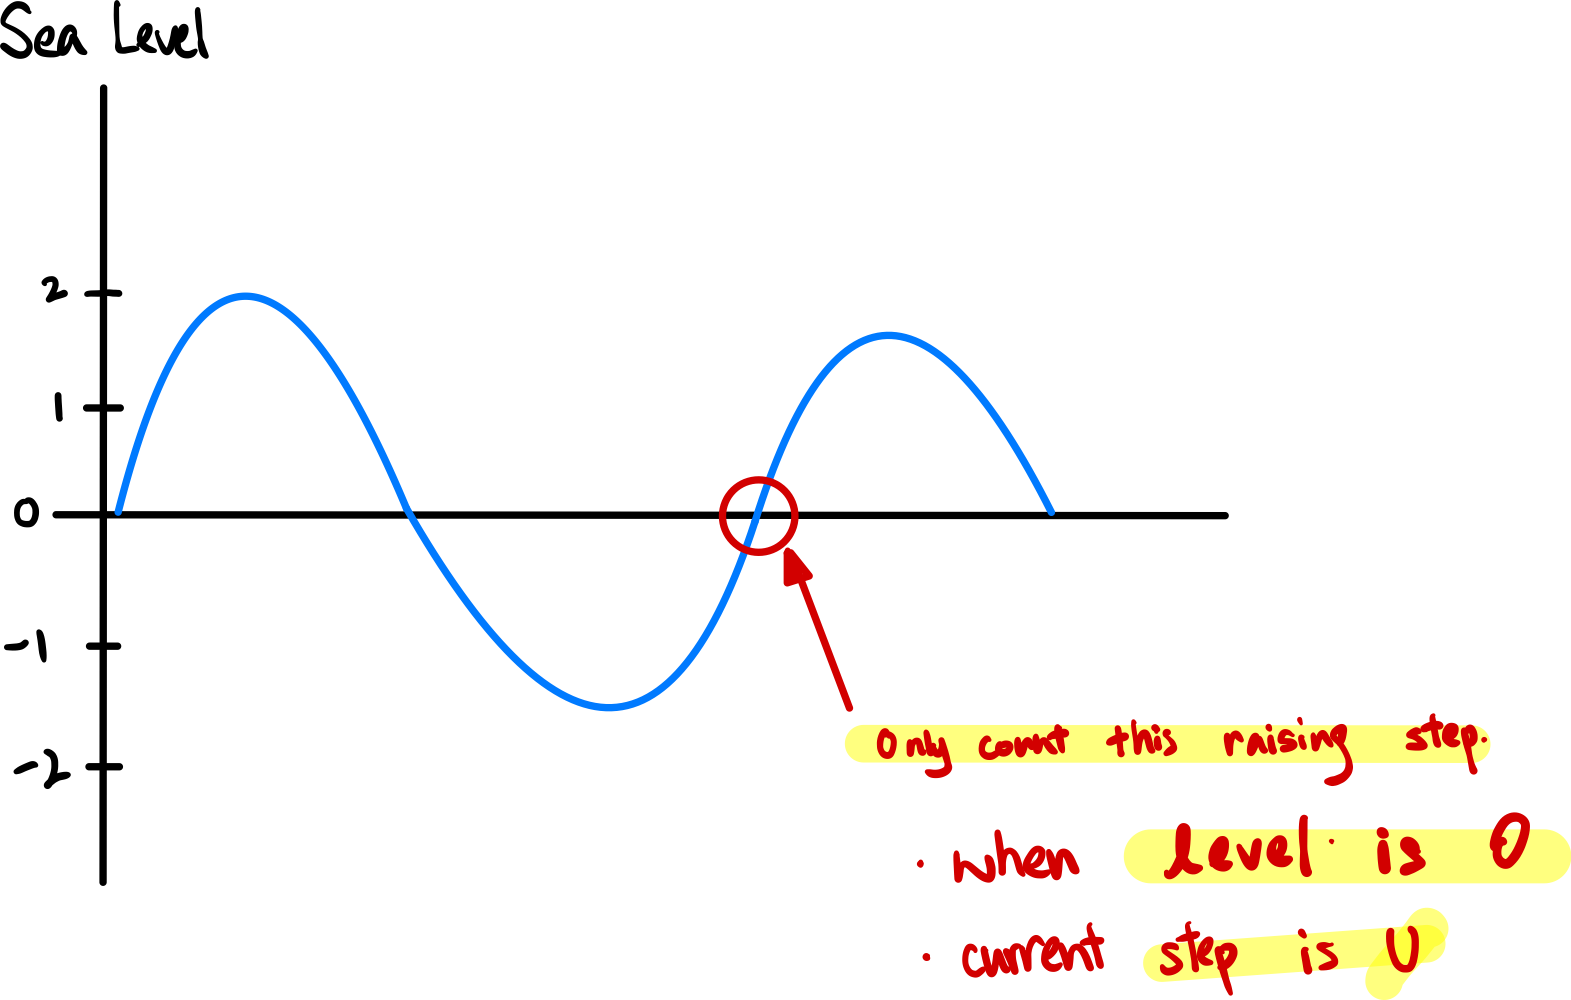 Sea Level
2
1
0
-1
-2
Only count this raising step.
· when level is 0
· current step is U